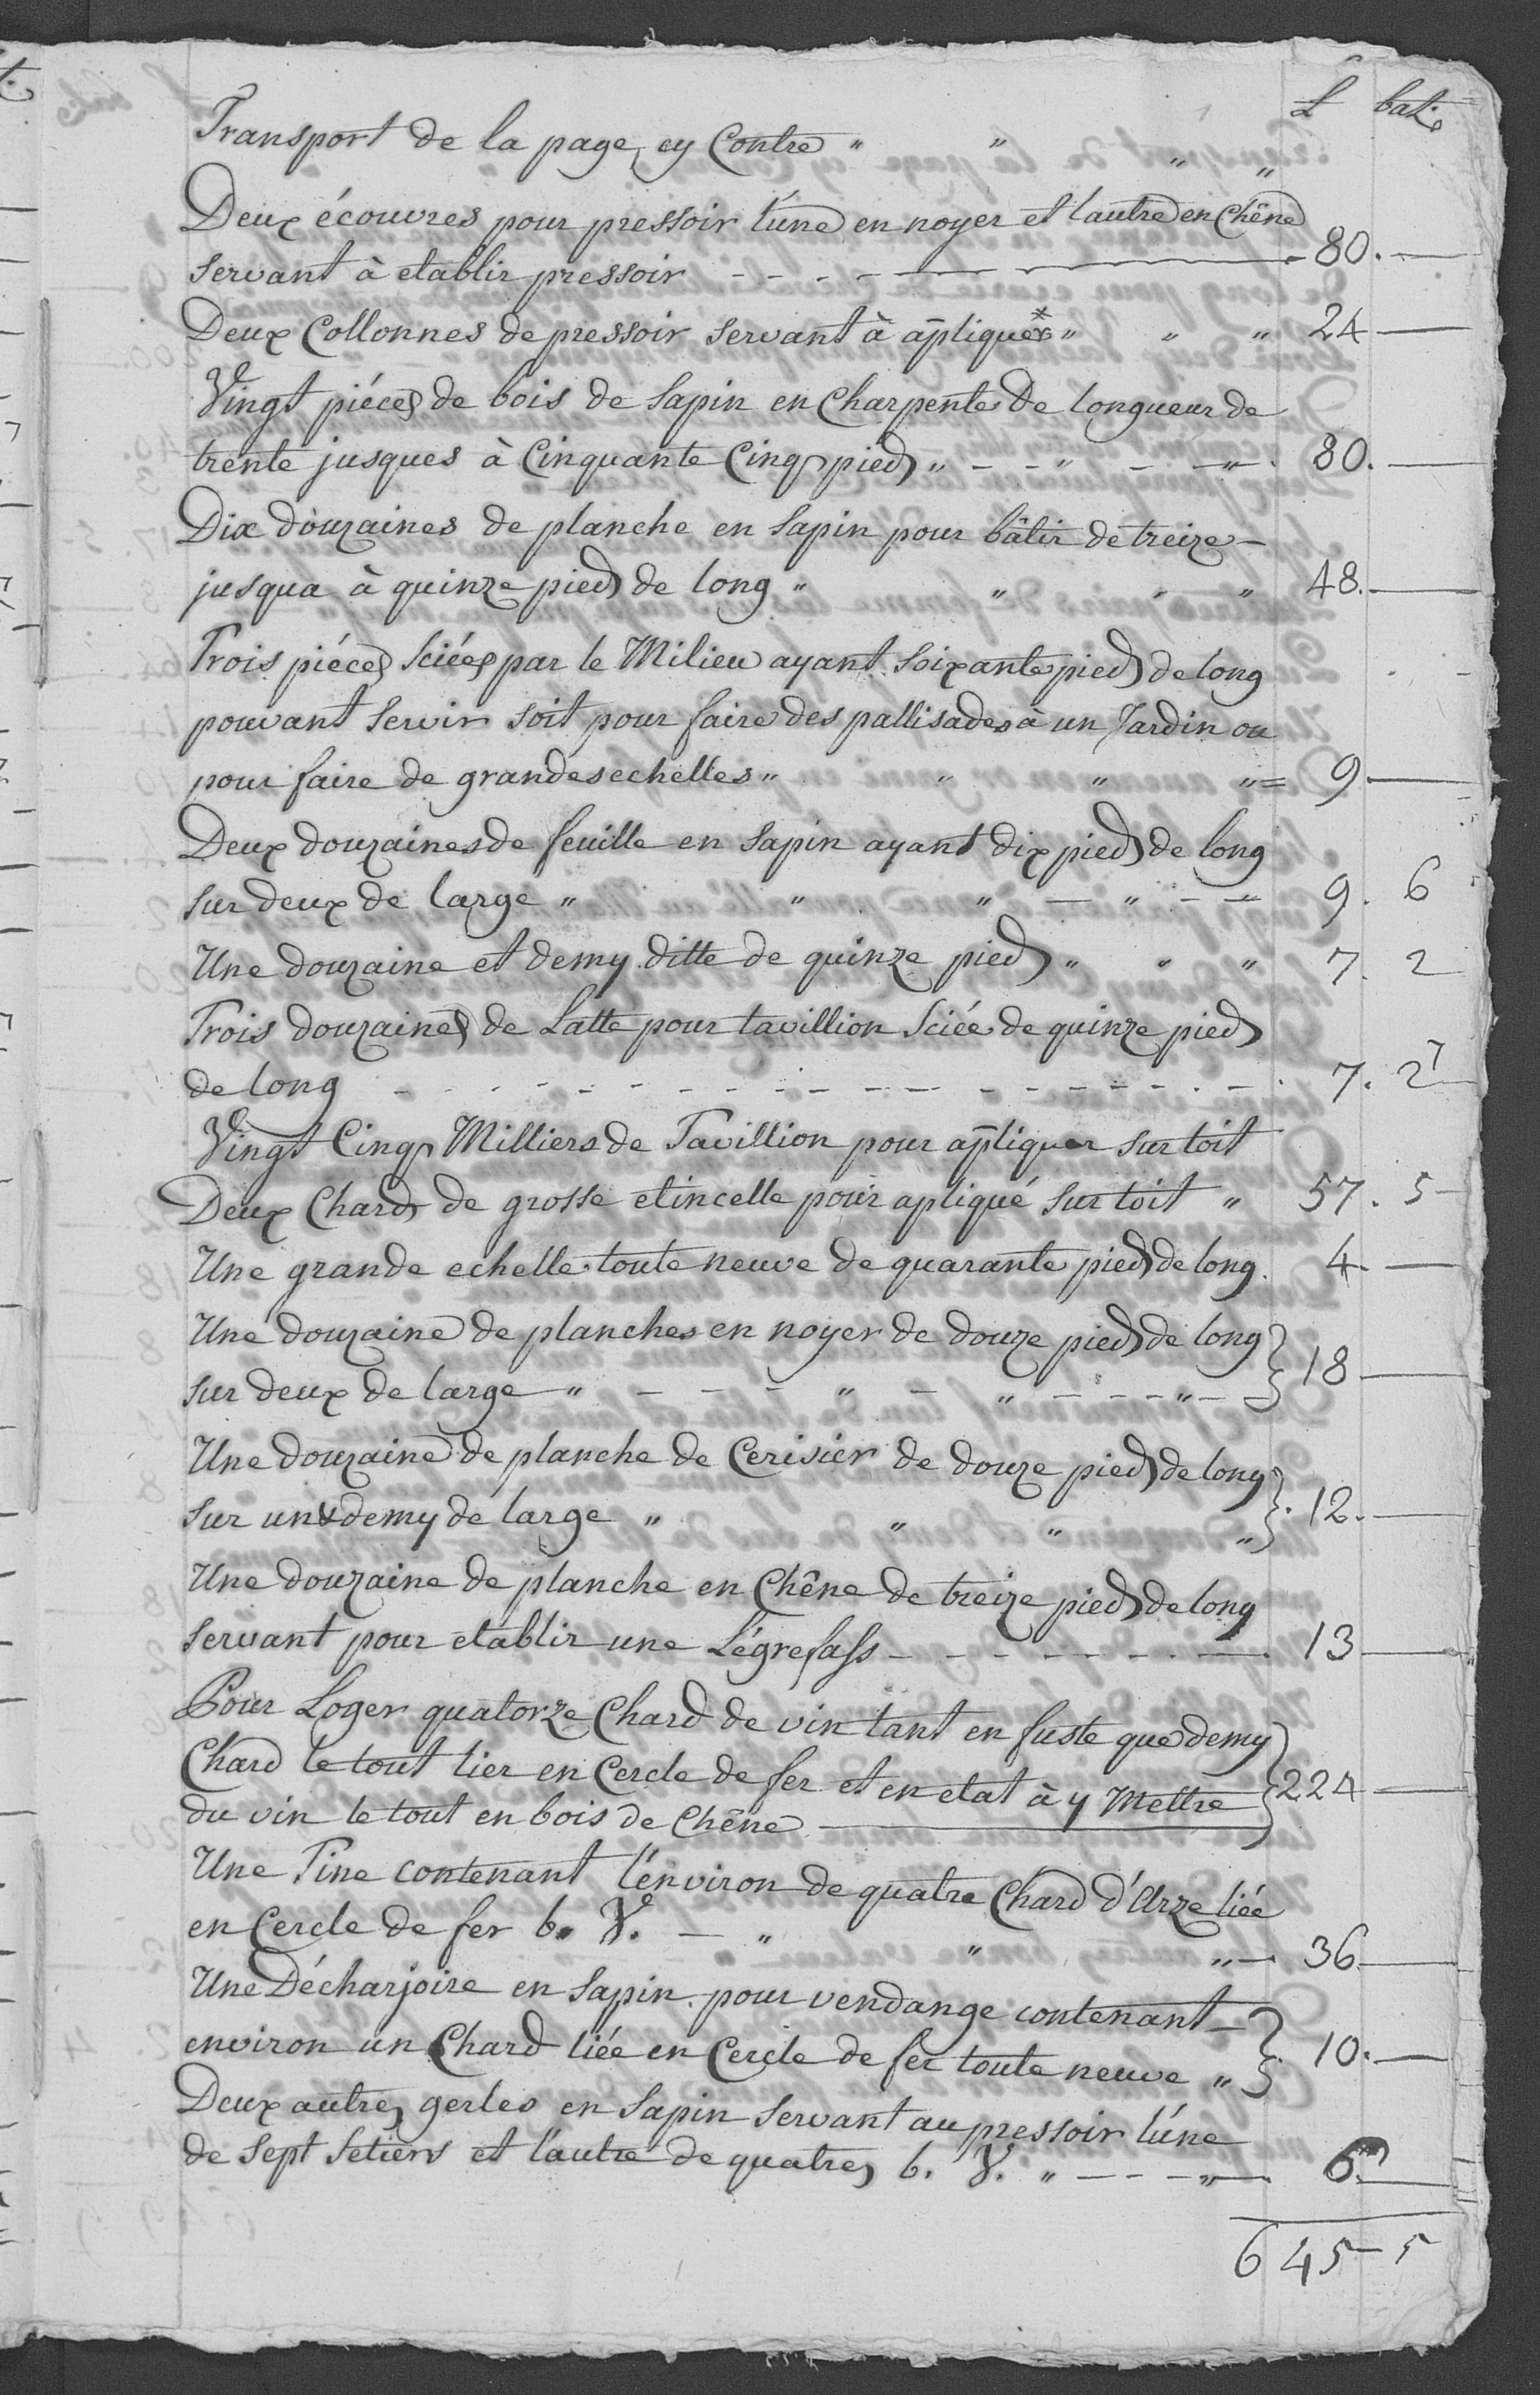 L bat.
Transport de la page cy Contre " " " "
Deux écouvres pour pressoir l'une en noyer et lautre en Chêne
servant à etablir pressoir - - - - 80. —
Deux Collonnes de pressoir servant à apliquer * " " " 24 —
Vingt piéces de bois de Sapin en Charpente De longueur de
trente jusques à Cinquante Cinq pieds " - - " - " 80. —
Dix douzaines de planche en Sapin pour bâtir de treize -
jusqua à quinze pieds de long " " " " 48. —
Trois piéces Sciées par le Milieu ayant Soixante pieds de long
pouvant Servir soit pour faire des pallisades à un Jardin ou
pour faire de grandes echelles " " " " = 9 —
Deux douzaines de feuille en Sapin ayant dix pieds de long
sur deux de large " " " — " - — 9. 6
Une douzaine et demy ditte de quinze pieds " " " 7. 2
Trois douzaines de Latte pour tavillion Sciée de quinze pieds
de long - - - - - - - - - - - 7. 2
Vingt Cinq Milliers de Tavillion pour apliquer sur toit
Deux Chards de grosse etincelle pour apliqué sur toit " 57. 5
Une grande echelle toute neuve de quarante pieds de long. 4. —
Une douzaine de planches en noyer de douze pieds de long
sur deux de large " - - - " - " - - - " - } 18 —
Une douzaine de planche de Cerisier de douze pieds de long
sur un & demy de large " " " " } 12. —
Une douzaine de planche en Chêne de treize pieds de long
servant pour etablir une Légrefass - - - - - - 13 —
Pour Loger quatorze Chard de vin tant en fuste que demy
Chard le tout lier en Cercle de fer et en etat à y Mettre } 224 —
du vin le tout en bois de Chêne —
Une Tine contenant l'environ de quatre Chard d'Arze liée
en Cercle de fer b. V. — " " " — 36 —
Une Décharjoire en Sapin pour vendange contenant -
environ un Chard liée en Cercle de fer toute neuve " } 10. —
Deux autres gerles en Sapin Servant au pressoir l'une
de Sept Setiers et l'autre de quatre b. V. " - - - " - 6. —
645 5